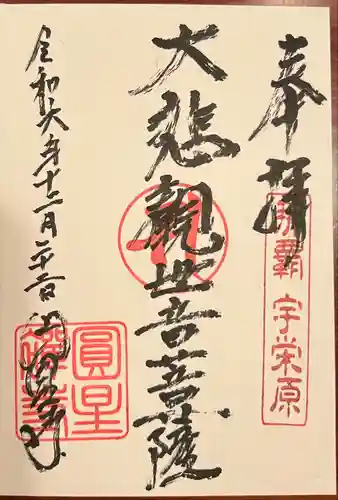 奉拝
那覇 宇栄原
大悲観世音菩薩
令和六年十二月二十二日
圓星禅寺